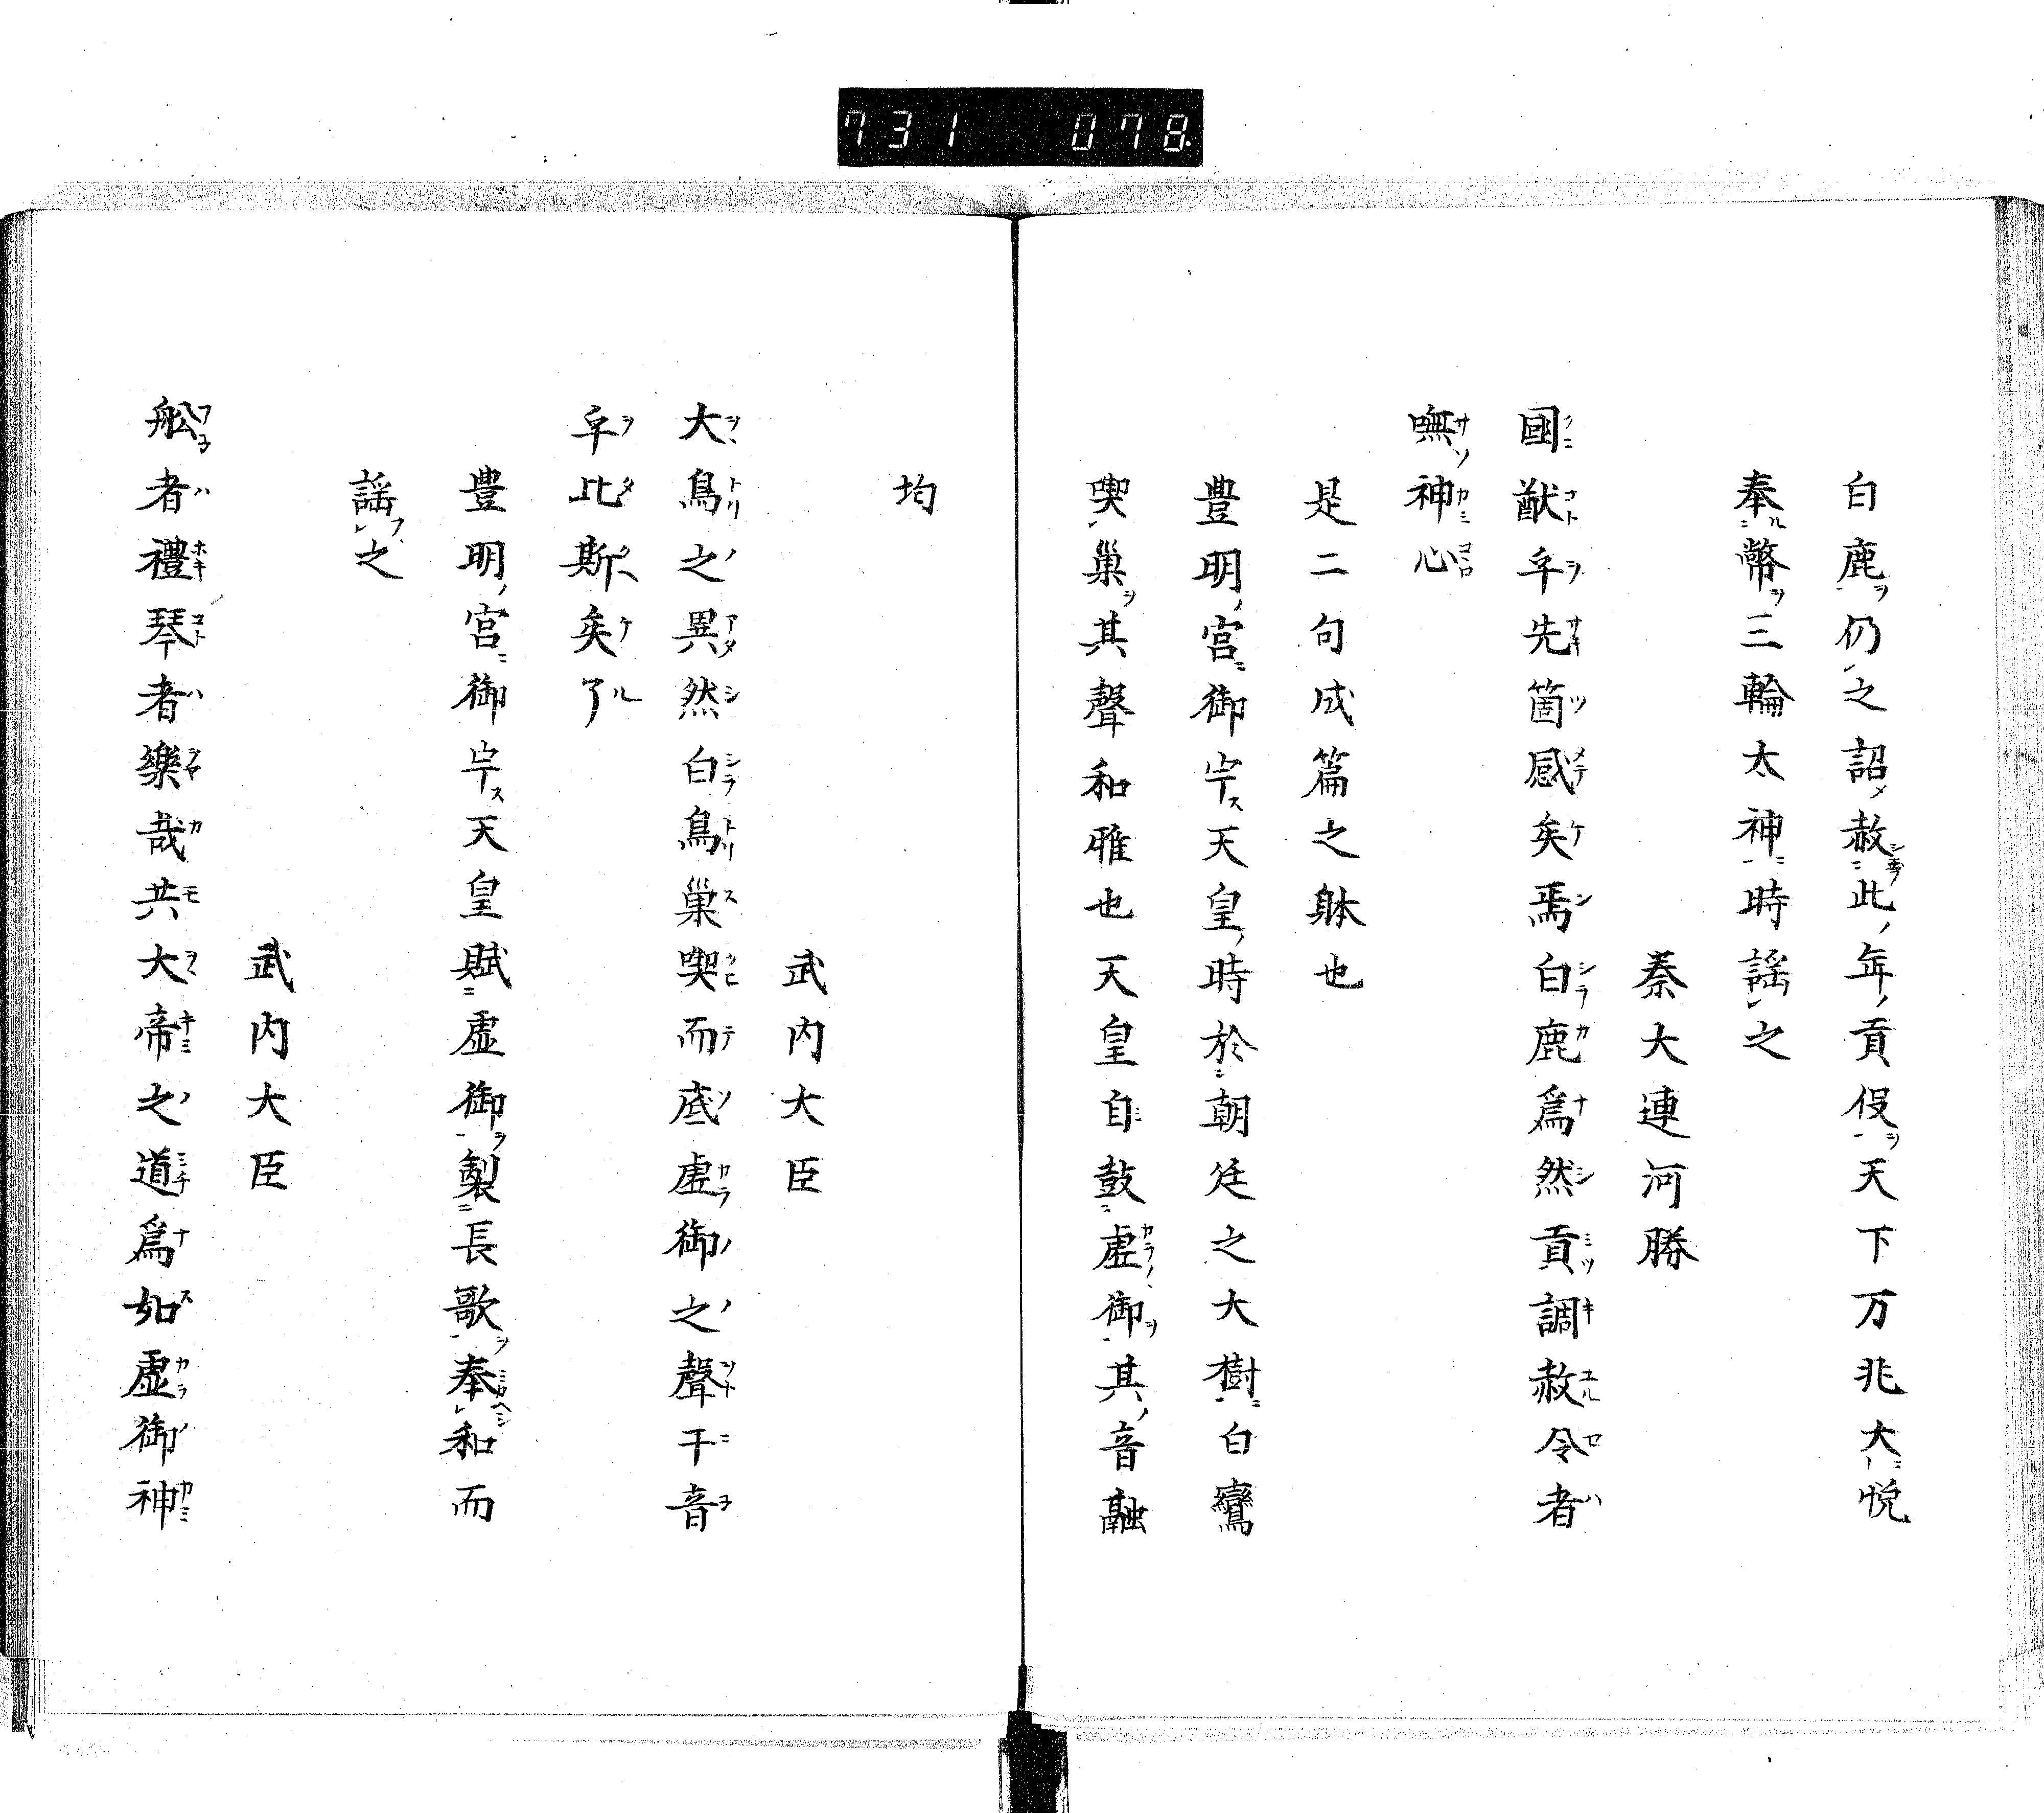 731 078
白鹿仍之詔赦此年貢役天下万兆大悅
奉幣三輪太神時謡之
秦大連河勝
國猷乎先箇感矣焉白鹿爲然貢調赦令者
嘸神心
是二句成篇之躰也
豊明宮御宇天皇時於朝廷之大樹白鸞
喫巢其聲和雅也天皇自鼓虛御其音融
均
武内大臣
大鳥之異然白鳥巢喫而底虛御之聲干音
乎比斯矣了
豊明宮御宇天皇賦虛御製長歌奉和而
謡之
武内大臣
舩者禮琴者樂哉共大帝之道爲如虛御神